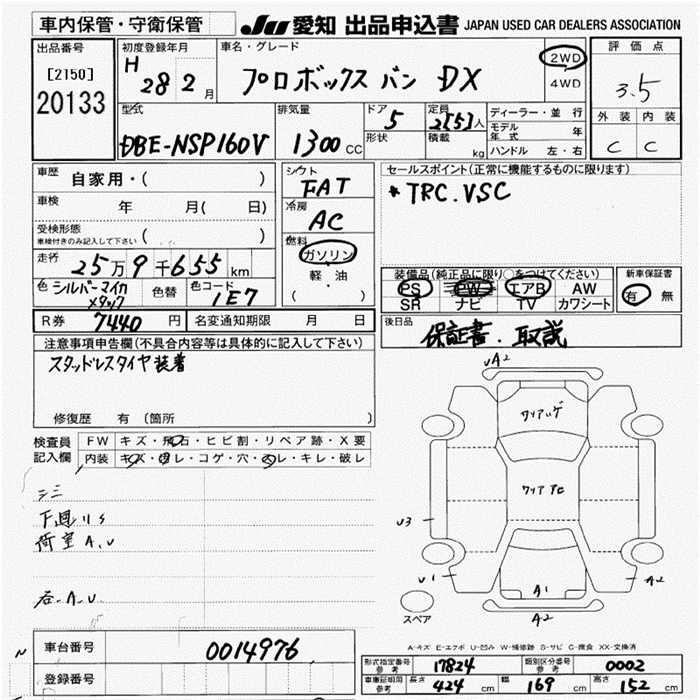 車内保管・守衛保管
JU 愛知 出品申込書 JAPAN USED CAR DEALERS ASSOCIATION
出品番号
[2150]
20133
初度登録年月
H 28 2月
車名・グレード
プロボックス バン DX
2WD
4WD
評価点
3.5
外装 内装
C C
型式
DBE-NSP160V
排気量
1300 CC
ドア 5
形状
定員 2[5]人
積載 kg
ディーラー・並行
モデル年式 年
ハンドル 左・右
車歴 自家用・( )
車検 年 月( 日)
受検形態
車検付きのみ記入して下さい ( )
走行 25万9千655km
色 シルバーマイカメタリック
色替
色コード 1E7
シフト
FAT
冷房
AC
燃料
ガソリン
軽・油
( )
セールスポイント(正常に機能するものに限ります)
*TRC.VSC
装備品(純正品に限り○をつけてください)
PS PW エアB AW
SR ナビ TV カワシート
新車保証書
有 無
R券 7440円 名変通知期限 月 日
後日品
保証書.取説
注意事項申告欄(不具合内容等は具体的に記入して下さい)
スタッドレスタイヤ装着
修復歴 有 (箇所 )
検査員記入欄
FW キズ・飛石・ヒビ割・リペア跡・X要
内装 キズ・汚レ・コゲ・穴・スレ・キレ・破レ
シミ
下廻りS
荷室A.U
A.U
UA2
U3
U1
A1
A2
A2
スペア
A-キズ E-エクボ U-凹み W-補修跡 S-サビ C-腐食 XX-交換済
車台番号 0014976
登録番号
型式指定番号 参考 17824
類別区分番号 参考 0002
車庫証明用 参考 長さ 424 cm 幅 169 cm 高さ 152 cm